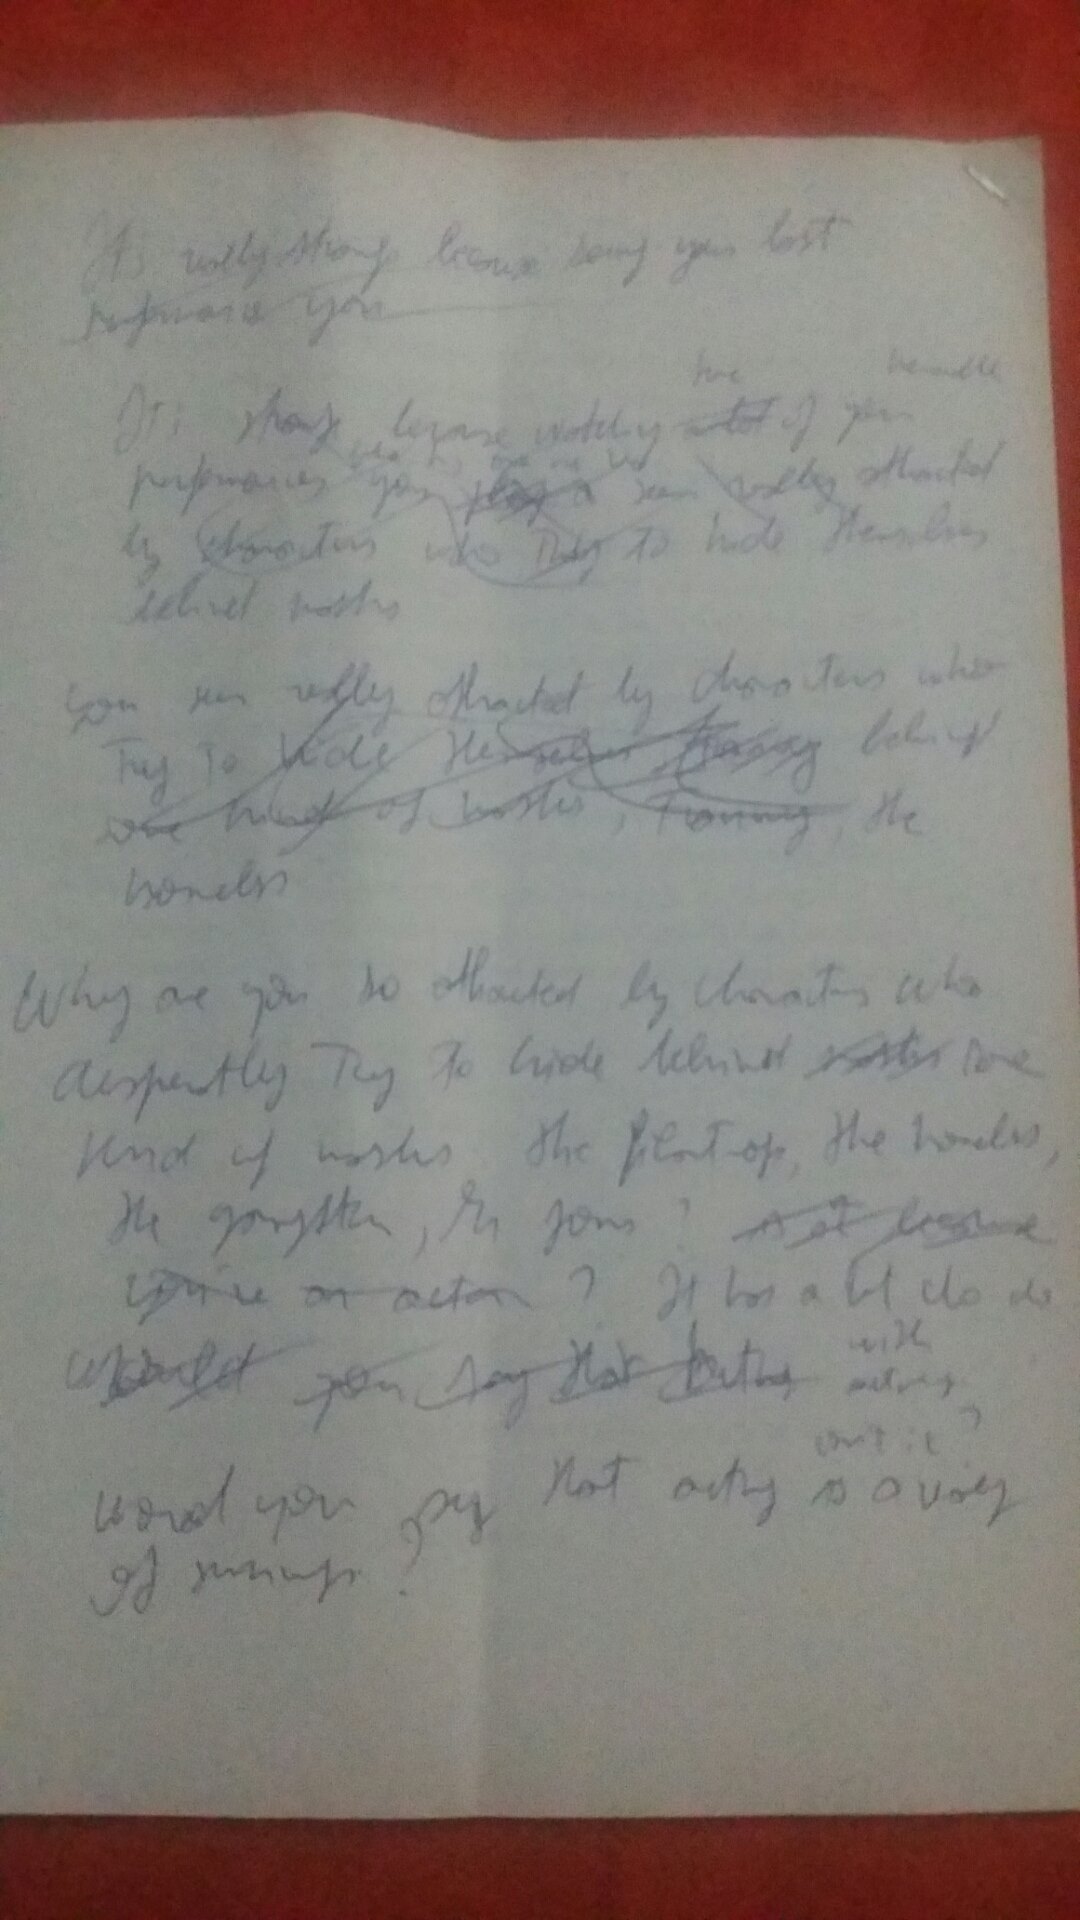 It's really strange because seeing your last
performance you
some
It's strange because watching a lot of your
performances you a seem really attracted
by characters who try to hide themselves
behind masks
you seem really attracted by characters who
Try To hide themselves behind
some kind of masks, the
homeless
Why are you so attracted by characters who
desperatly Try To hide behind masks some
kind of masks the filantrop, the homeless,
the gangster, Mr Jons? Is it because
you're an actor? It has a lot do do
Would you say that acting with
acting
isn't it?
would you say that acting is a way
of